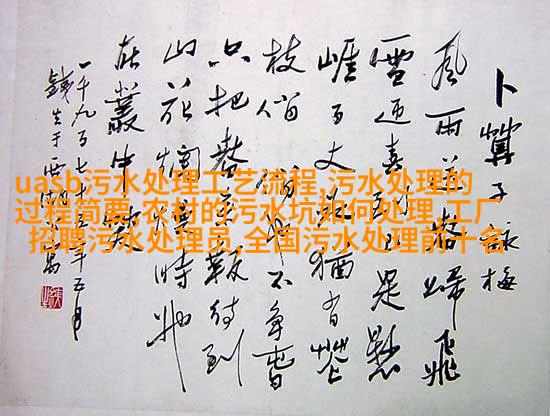 卜算子 詠梅
風雨送春歸飛
雪迎春到已是懸
崖百丈冰猶有花
枝俏俏也不爭春
只把春來報待到
山花爛漫時她
在叢中笑
一千九百七年五月
uasb污水处理工艺流程,污水处理的
过程简要,农村的污水坑如何处理,工厂
招聘污水处理员,全国污水处理前十名